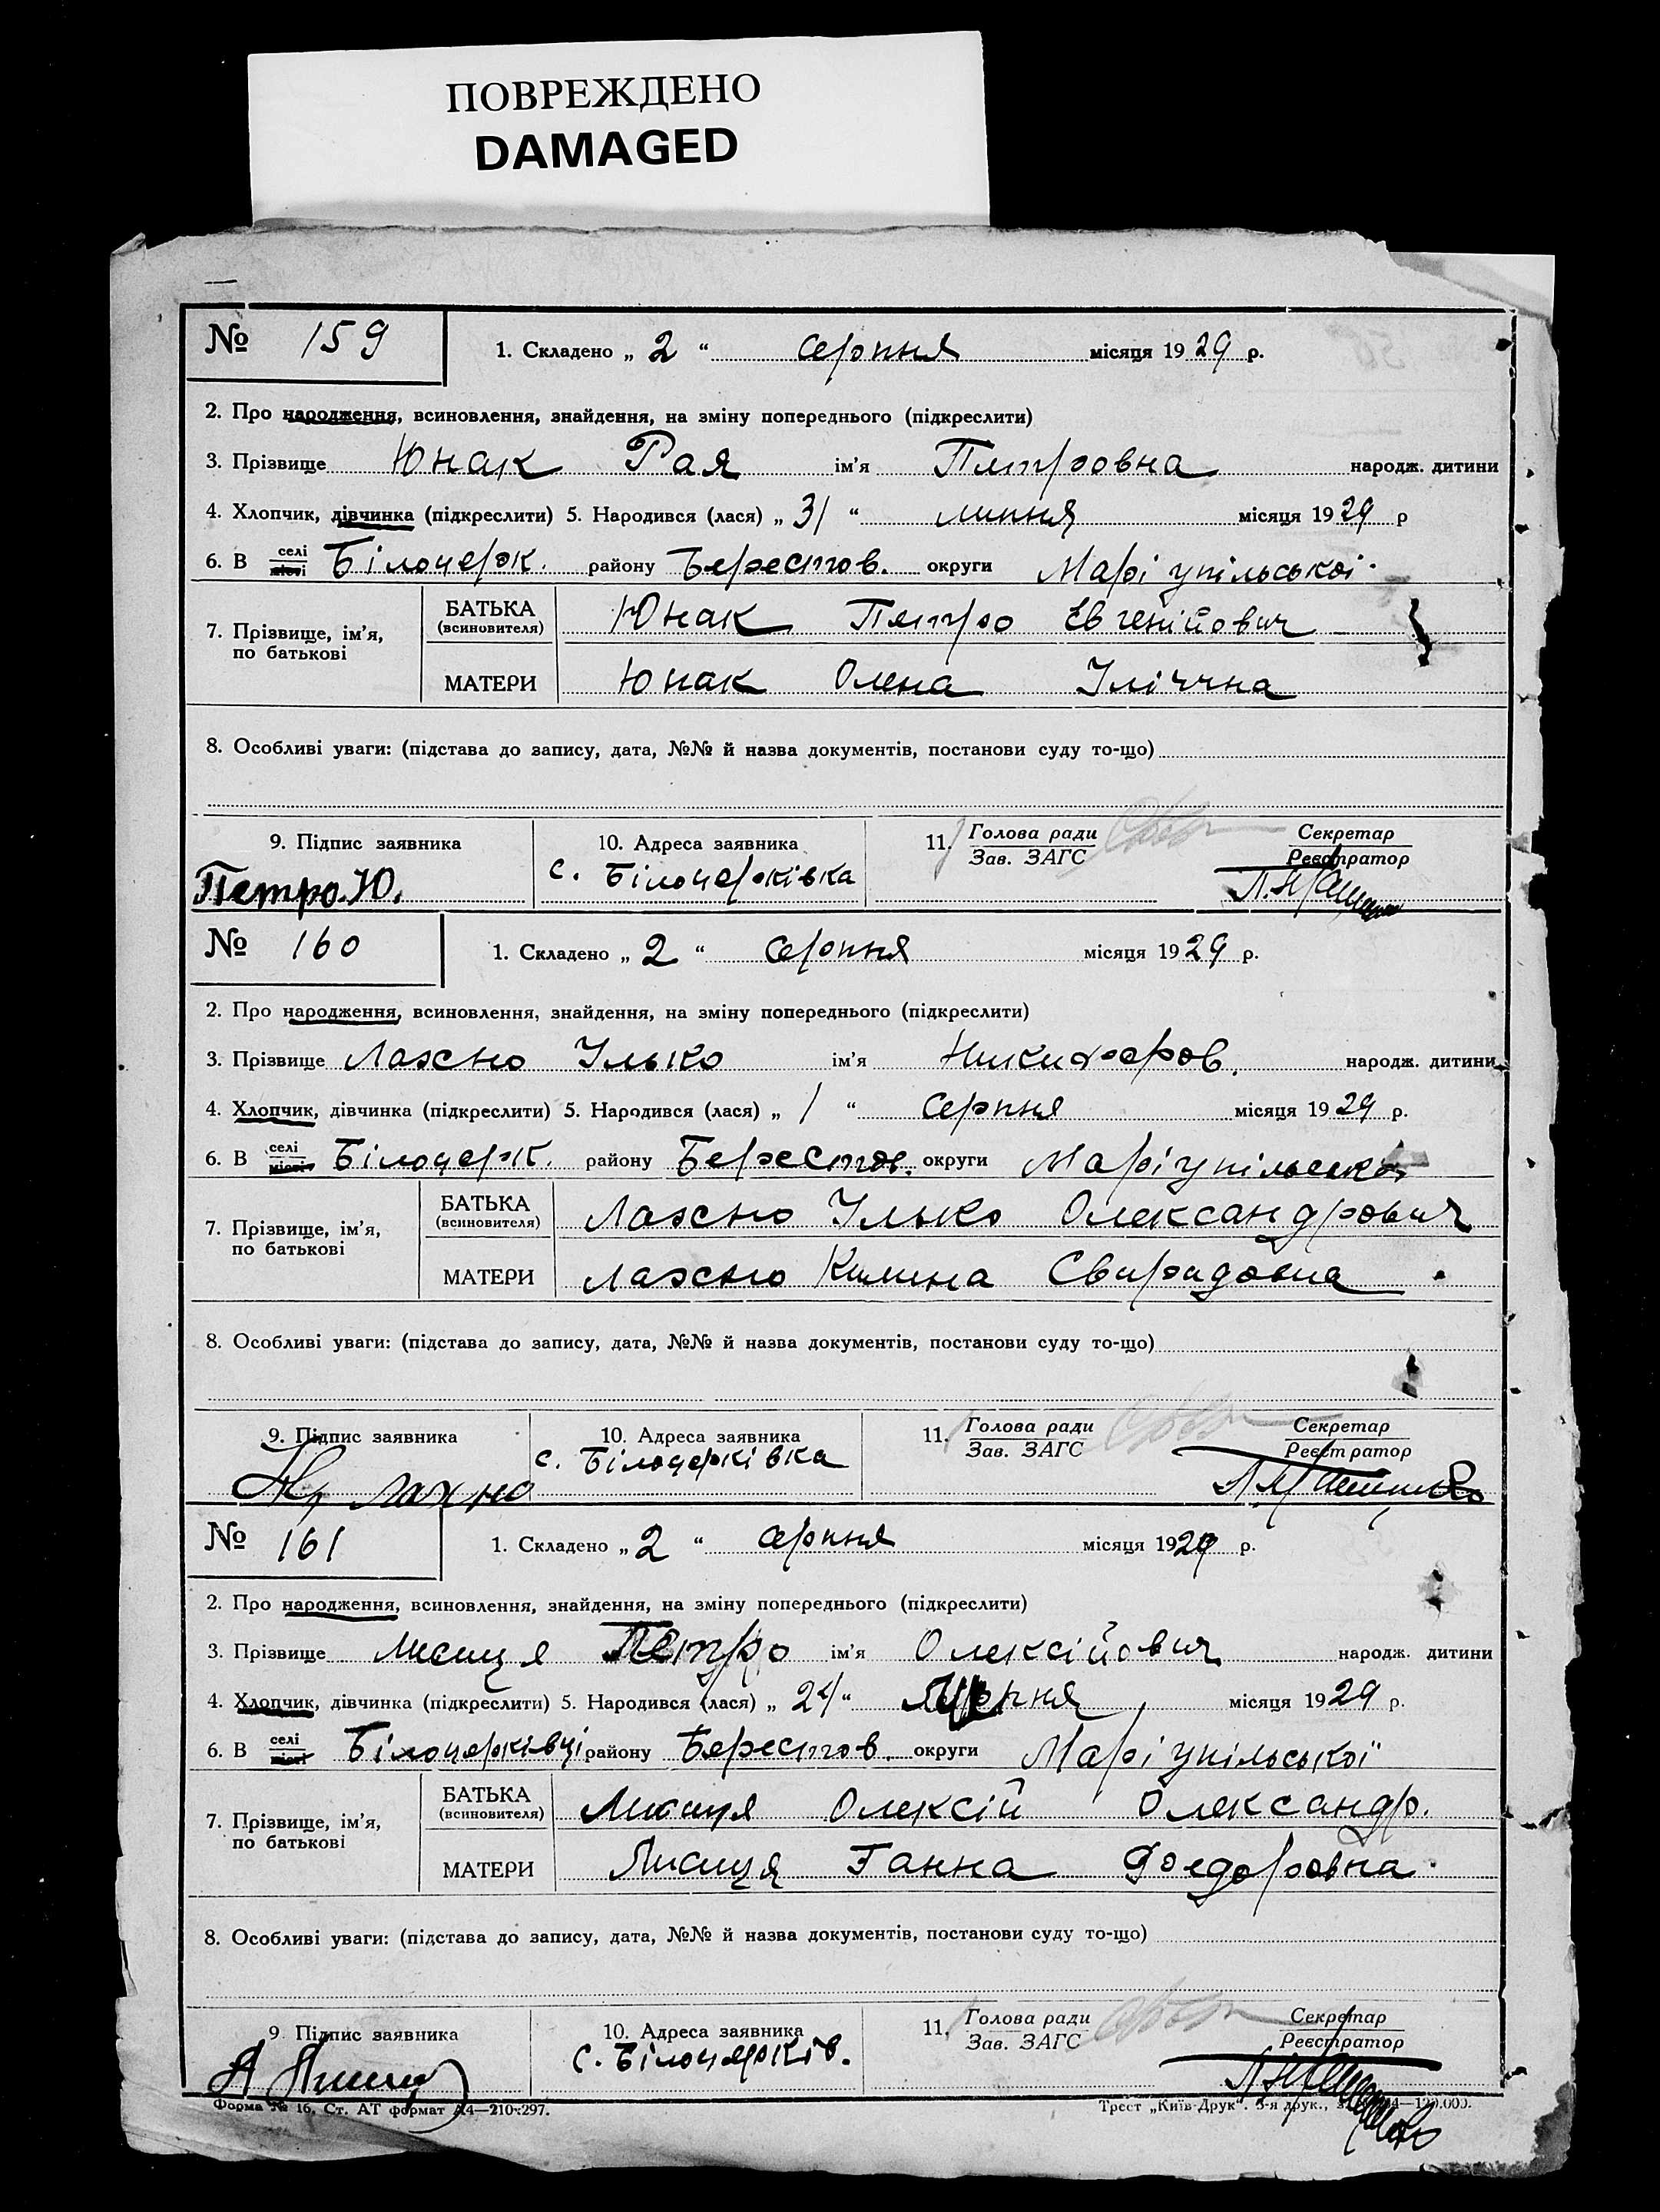 ПОВРЕЖДЕНО
DAMAGED
№ 159
1. Складено „ 2 “ серпня місяця 1929 р.
2. Про народження, всиновлення, знайдення, на зміну попереднього (підкреслити)
3. Прізвище Юнак Рая ім'я Петровна народж. дитини
4. Хлопчик, дівчинка (підкреслити) 5. Народився (лася) „ 31 “ липня місяця 1929 р
6. В селі місті Білоцерк. району Берестов. округи Маріупільської.
7. Прізвище, ім'я, по батькові
БАТЬКА (всиновителя) Юнак Петро Євгенійович
МАТЕРИ Юнак Олена Іліччна
8. Особливі уваги: (підстава до запису, дата, №№ й назва документів, постанови суду то-що)
9. Підпис заявника 10. Адреса заявника 11. Голова ради Зав. ЗАГС Секретар Реєстратор
Петро.Ю. с. Білоцерківка
№ 160
1. Складено „ 2 “ серпня місяця 1929 р.
2. Про народження, всиновлення, знайдення, на зміну попереднього (підкреслити)
3. Прізвище Лахно Ілько ім'я Никифоров. народж. дитини
4. Хлопчик, дівчинка (підкреслити) 5. Народився (лася) „ 1 “ серпня місяця 1929 р.
6. В селі місті Білоцерк. району Берестов. округи Маріупільської
7. Прізвище, ім'я, по батькові
БАТЬКА (всиновителя) Лахно Ілько Олександрович
МАТЕРИ Лахно Килина Свиридовна
8. Особливі уваги: (підстава до запису, дата, №№ й назва документів, постанови суду то-що)
9. Підпис заявника 10. Адреса заявника 11. Голова ради Зав. ЗАГС Секретар Реєстратор
Лахно с. Білоцерківка
№ 161
1. Складено „ 2 “ серпня місяця 1929 р.
2. Про народження, всиновлення, знайдення, на зміну попереднього (підкреслити)
3. Прізвище Лисиця Петро ім'я Олексійович народж. дитини
4. Хлопчик, дівчинка (підкреслити) 5. Народився (лася) „ 24 “ місяця 1929 р.
6. В селі місті Білоцерківці району Берестов. округи Маріупільської
7. Прізвище, ім'я, по батькові
БАТЬКА (всиновителя) Лисиця Олексій Олександр.
МАТЕРИ Лисиця Ганна Фоедоровна.
8. Особливі уваги: (підстава до запису, дата, №№ й назва документів, постанови суду то-що)
9. Підпис заявника 10. Адреса заявника 11. Голова ради Зав. ЗАГС Секретар Реєстратор
с. Білоцерків.
Форма № 16. Ст. АТ формат А4—210х297. Трест „Київ-Друк“. 3-я друк.,